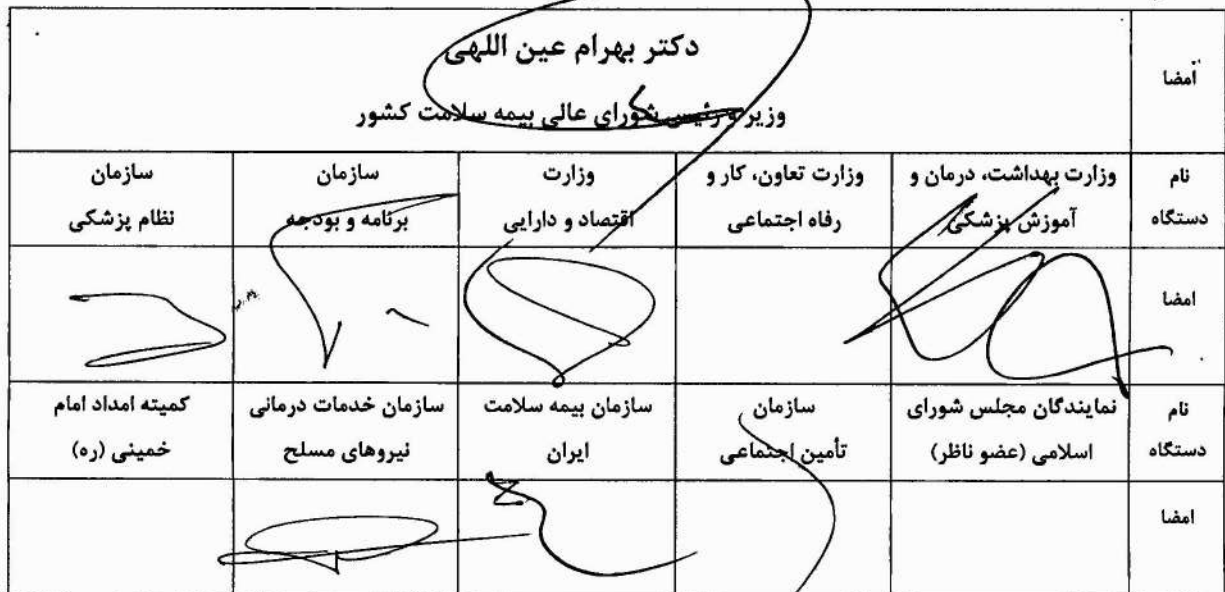 دکتر بهرام عین اللهی
امضا
وزیر و رئیس شورای عالی بیمه سلامت کشور
نام دستگاه
وزارت بهداشت، درمان و آموزش پزشکی
وزارت تعاون، کار و رفاه اجتماعی
وزارت اقتصاد و دارایی
سازمان برنامه و بودجه
سازمان نظام پزشکی
امضا
نام دستگاه
نمایندگان مجلس شورای اسلامی (عضو ناظر)
سازمان تأمین اجتماعی
سازمان بیمه سلامت ایران
سازمان خدمات درمانی نیروهای مسلح
کمیته امداد امام خمینی (ره)
امضا